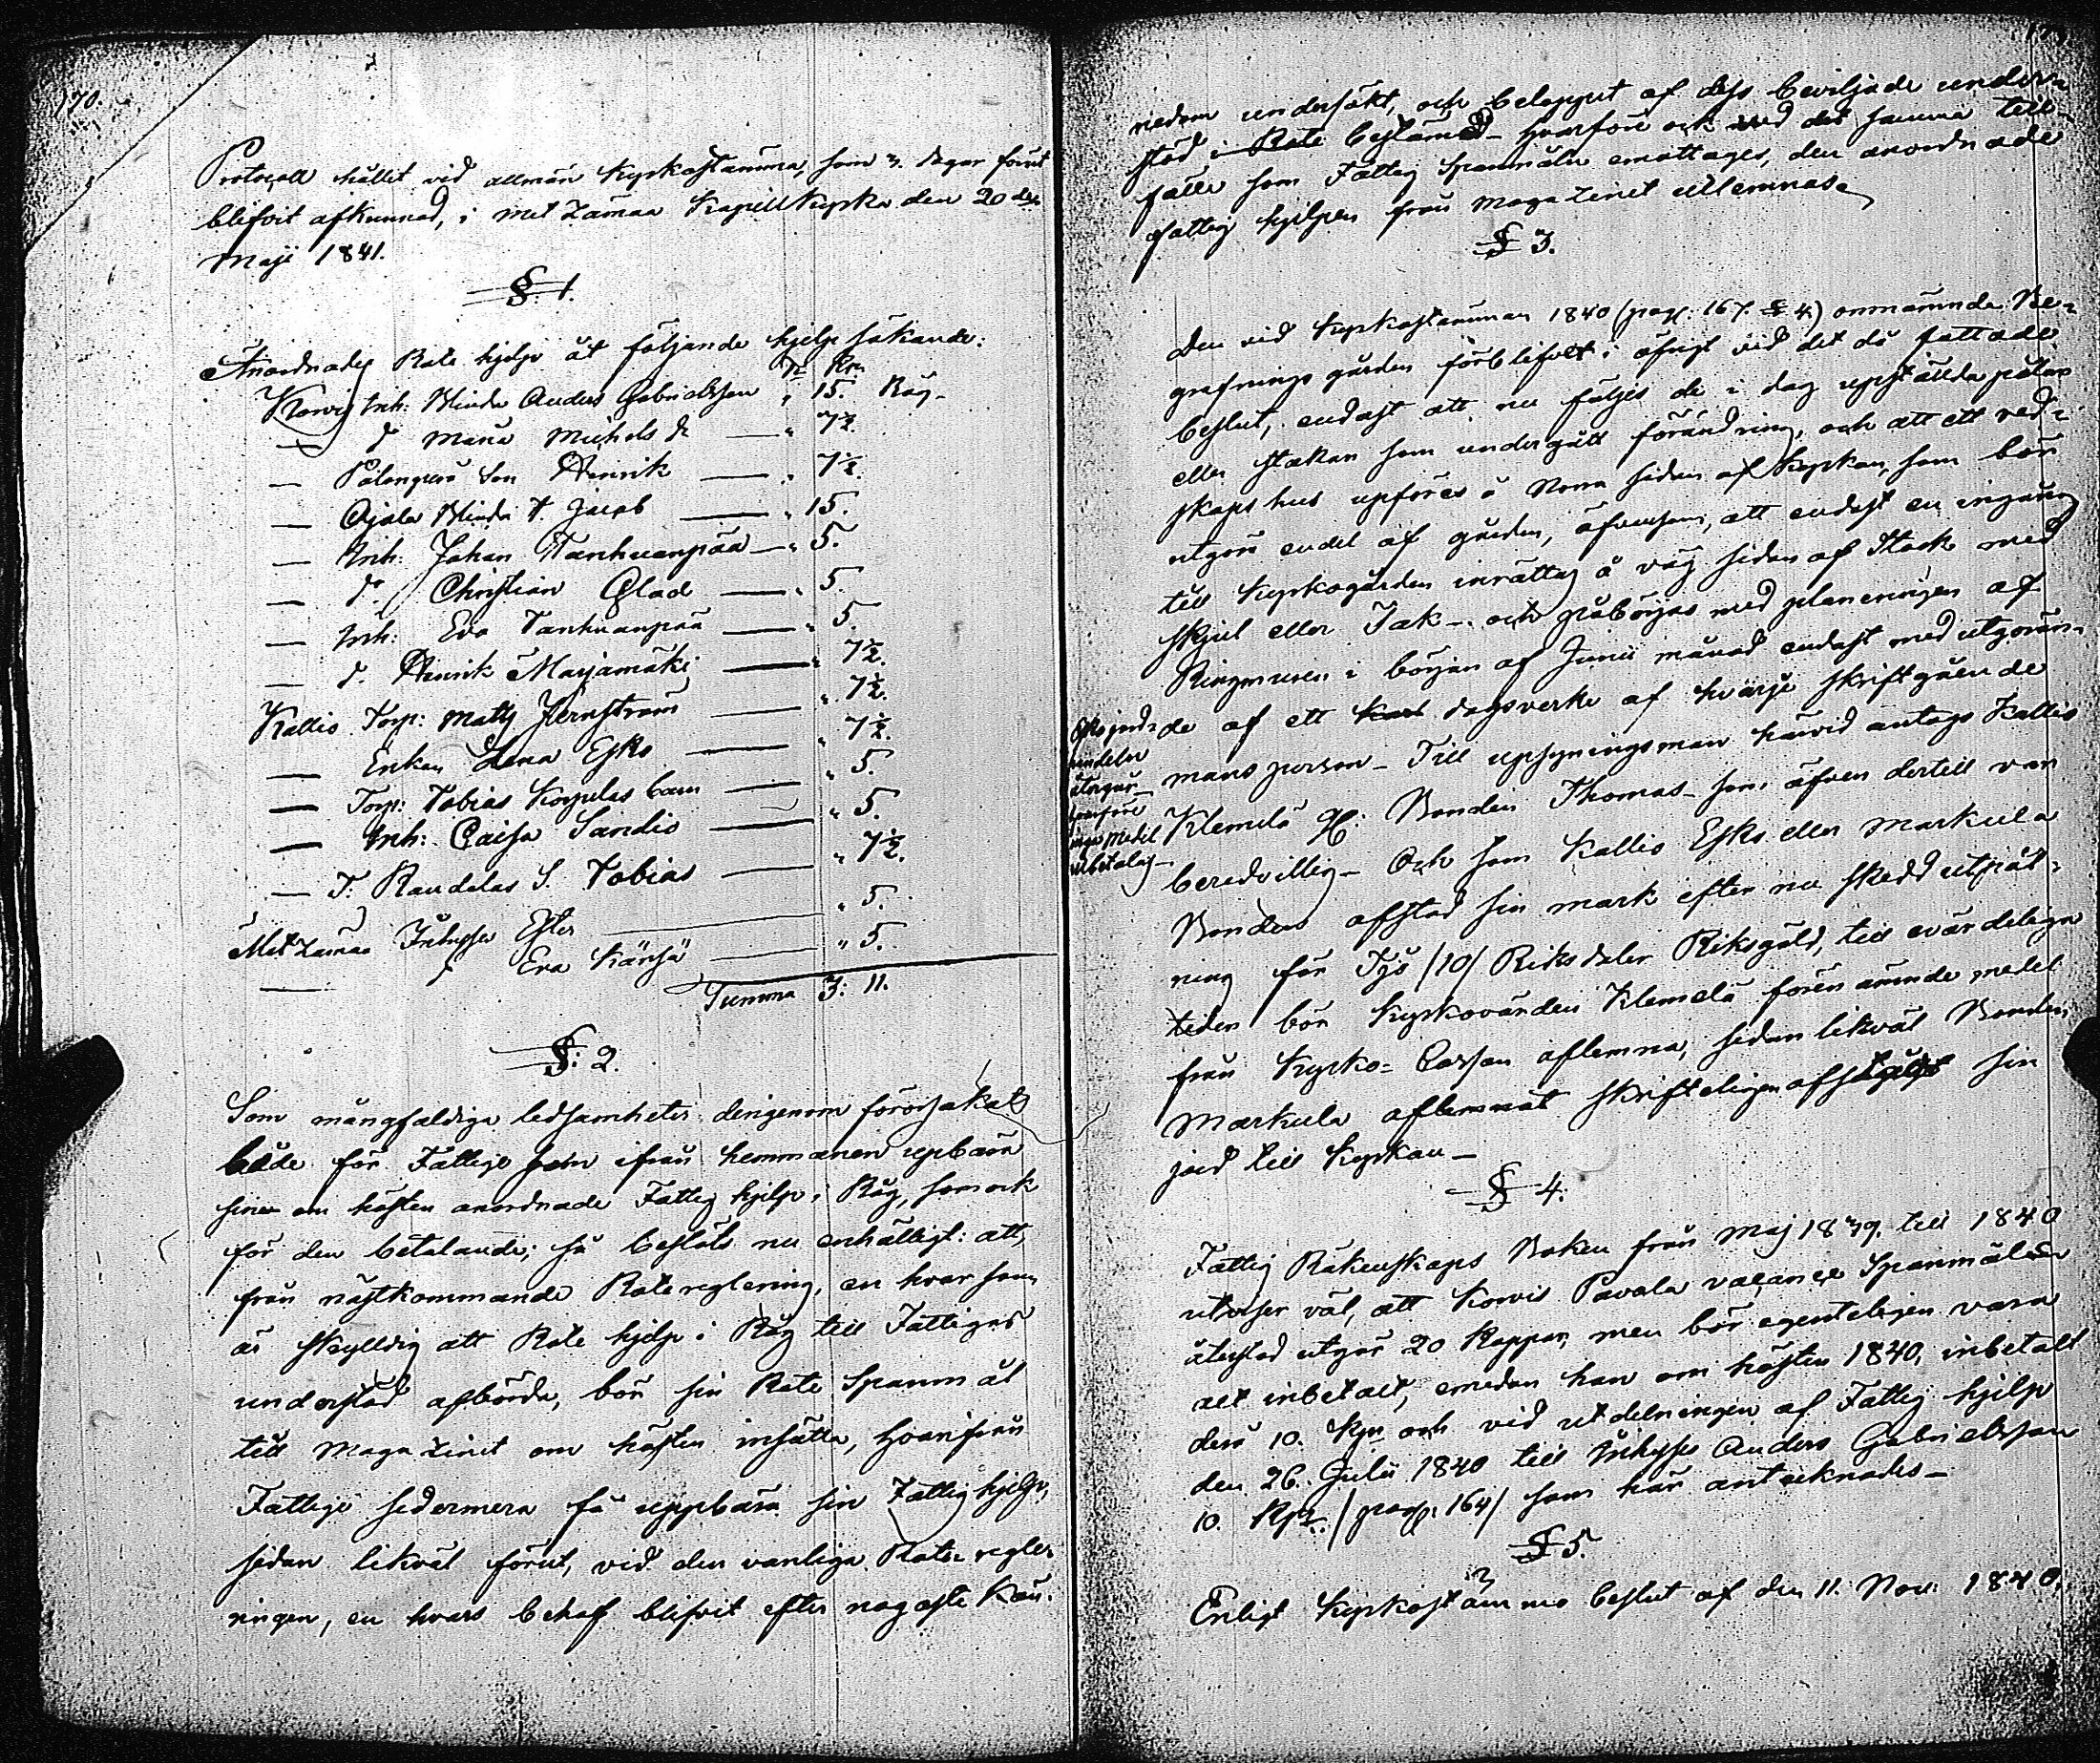 170.
Protocoll hållit vid allmän Kyrkostämma, som 3. dagar förut
blifvit afkunnad, i Metzämaa Kapell Kyrka den 20 de
Maji 1841.
§: 1.
Anordnades Rote hjelp åt följande hjelpsökande:
Tr Kpr
Korvis Inh: Blinda Anders Gabrielsson " 15. Råg
— d:o Maria Michels dr — " 7½.
— Son Henrik — " 7½.
— Ojala Blinda Jacob — " 15.
— Inh: Johan Tanhuanpää — " 5.
— d:o Christian Glad — " 5.
— Inh: Eva Tanhuanpää — " 5.
— d:o Henrik Marjamäki — " 7½.
Kallis Torp: Matts Jernström — " 7½.
— Enkan Lena Esko — " 7½.
— Torp: Tobias Korpelas barn — " 5.
— Inh: Caisa Sandis — " 5.
— T. Raudelas S. Tobias — " 7½.
Metzämaa Inhyses Ester — " 5.
— d:o Eva Kärsä — " 5.
Summa 3: 11.
§: 2.
Som mångfaldiga ledsamheter derigenom förorsakats
både för Fattige som ifrån hemmanen upbära
sin om hösten anordnade Fattig hjelp i Råg, som ock
för den betalande; så beslöts nu enhälligt: att,
från nästkommande Rotereglering, en hvar som
är skylldig att Rote hjelp i Råg till Fattigas
understöd afbörda, bör sin Rote Spannmål
till Magazinet om hösten insätta, hvarifrån
Fattige sedermera få uppbära sin Fattighjelp,
sedan likväl förut, vid den vanliga Rote regle
ringen, en hvars behof blifvit efter nogaste kän-
nedom undersökt, och beloppet af dess beviljade under=
stöd i Rote bestämd – hvarföre ock vid det samma till
fälle som Fattig Spanmåln emottages, den anordnade
fattig hjelpen från Magazinet utlemnas.
§ 3.
Den vid Kyrkostämman 1840 (pag: 167. § 4) omnämnde Be=
grafnings gården förblifver i öfrigt vid det då fattade
beslut, endast att nu följes de i dag upställda pålar
eller stakar som undergått förändring, och att ett red=
skapshus upföres å Norra sidan af Kyrkan, som bör
utgöra endel af gården, äfvensom, att endast en ingång
till Kyrkogården inrättas å väg sidan af Stock med
skjul eller Tak – och påbörjas med planeringen af
Ringmuren i början af Junii månad endast med utgöran=
de af ett dagsverke af hvarje skriftgående
mans person – Till upsyningsman härvid antogs Kallis
Klemelä H: Bonden Thomas – som äfven dertill var
beredvillig – Och som Kallis Esko eller Markula
Bonden afstod sin mark efter nu skedd utpål=
ning för Tijo /10/ Riksdaler Riksgäld, till evärdeliga
tider bör Kyrkovärden Klemelä förenämnde medel
från Kyrko= Cassan aflemna, sedan likväl Bonden
Markula aflemnat skrifteligen afstått sin
jord till Kyrkan –
inga Medel
utbetalas –
§ 4.
Fattig Räkenskaps Boken från Maj 1839. till 1840
utviser väl, att Korvis Pavola vacance Spanmåln
återstod utgör 20 Kappar, men bör egenteligen vara
alt inbetalt, emedan han om hösten 1840, inbetalt
derå 10. Kpr och vid utdelningen af Fattig hjelp
den 26. Julii 1840 till Inhyses Anders Gabrielsson
10. Kpr. /pag: 164/ som här antecknades –
§ 5.
Enligt Kyrkostämmo beslut af den 11. Nov: 1840.